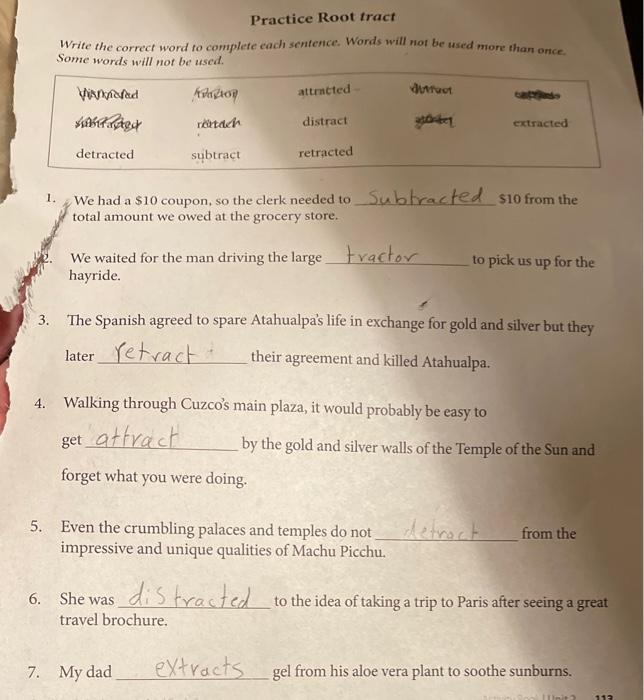 Practice Root tract
Write the correct word to complete each sentence. Words will not be used more than once.
Some words will not be used.
attracted
distract extracted
detracted subtract retracted
1. We had a $10 coupon, so the clerk needed to Subtracted $10 from the
total amount we owed at the grocery store.
2. We waited for the man driving the large tractor to pick us up for the
hayride.
3. The Spanish agreed to spare Atahualpa's life in exchange for gold and silver but they
later retract their agreement and killed Atahualpa.
4. Walking through Cuzco's main plaza, it would probably be easy to
get attract by the gold and silver walls of the Temple of the Sun and
forget what you were doing.
5. Even the crumbling palaces and temples do not detract from the
impressive and unique qualities of Machu Picchu.
6. She was distracted to the idea of taking a trip to Paris after seeing a great
travel brochure.
7. My dad extracts gel from his aloe vera plant to soothe sunburns.
113